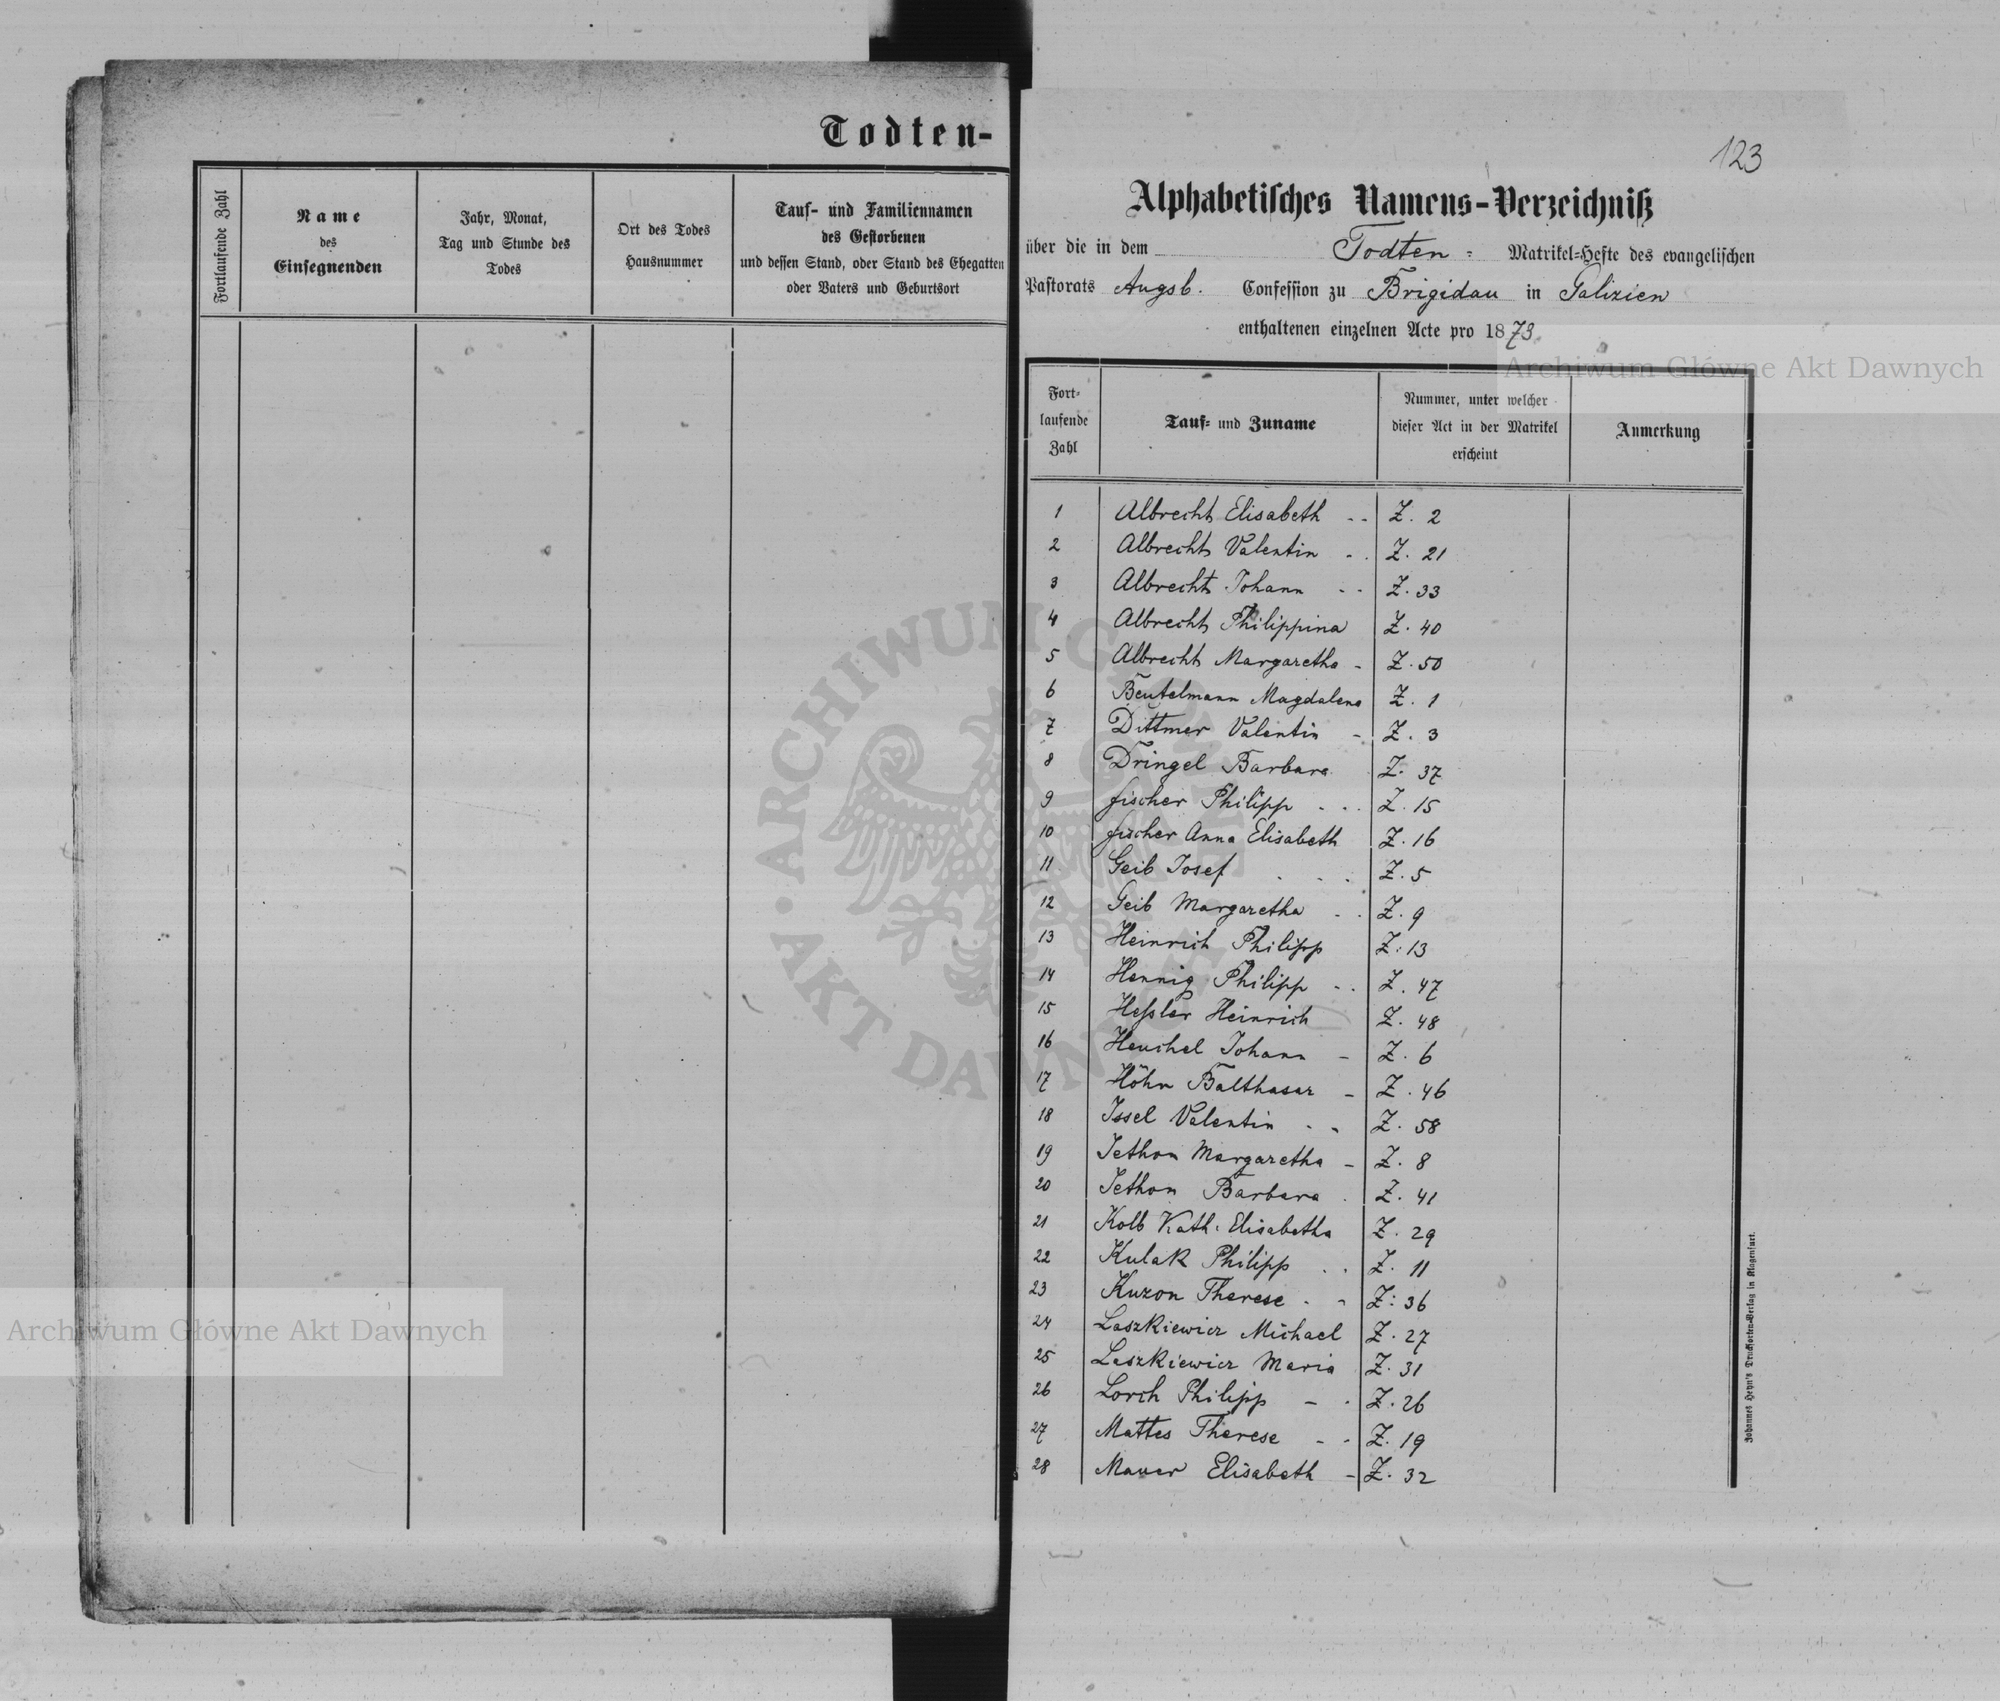 Todten-
Fortlaufende Zahl
Name
des
Einsegnenden
Jahr, Monat,
Tag und Stunde des
Todes
Ort des Todes
Hausnummer
Tauf- und Familiennamen
des Gestorbenen
und dessen Stand, oder Stand des Ehegatten
oder Vaters und Geburtsort
123
Alphabetisches Namens-Verzeichniß
über die in dem Todten- Matrikel-Hefte des evangelischen
Pastorats Augsb. Confession zu Brigidau in Galizien
enthaltenen einzelnen Acte pro 1873
Fort-
laufende
Zahl
Tauf- und Zuname
Nummer, unter welcher
dieser Act in der Matrikel
erscheint
Anmerkung
1 Albrecht Elisabeth - - Z. 2
2 Albrecht Valentin - . Z. 21
3 Albrecht Johann - - Z. 33
4 Albrecht Philippina Z. 40
5 Albrecht Margaretha - Z. 50
6 Beutelmann Magdalena Z. 1
7 Dittmer Valentin - Z. 3
8 Dringel Barbara Z. 37
9 Fischer Philipp . . . Z. 15
10 Fischer Anna Elisabeth Z. 16
11 Geib Josef . . . Z. 5
12 Geib Margaretha - . Z. 9
13 Heinrich Philipp Z: 13
14 Hennig Philipp - . Z. 47
15 Heßler Heinrich Z. 48
16 Heuchel Johann - Z. 6
17 Höhn Balthasar - Z. 46
18 Issel Valentin . - Z. 58
19 Jethon Margaretha - Z. 8
20 Jethon Barbara . Z. 41
21 Kolb Kath. Elisabetha Z. 29
22 Kulak Philipp . . Z. 11
23 Kuzon Therese . - Z: 36
24 Laszkiewicz Michael Z. 27
25 Laszkiewicz Maria Z. 31
26 Lorch Philipp - . Z. 26
27 Mattes Therese - - Z. 19
28 Mauer Elisabeth - Z. 32
Johannes Heyn's Drucksorten-Verlag in Klagenfurt.
Archiwum Główne Akt Dawnych
ARCHIWUM GŁÓWNE • AKT DAWNYCH •
Archiwum Główne Akt Dawnych